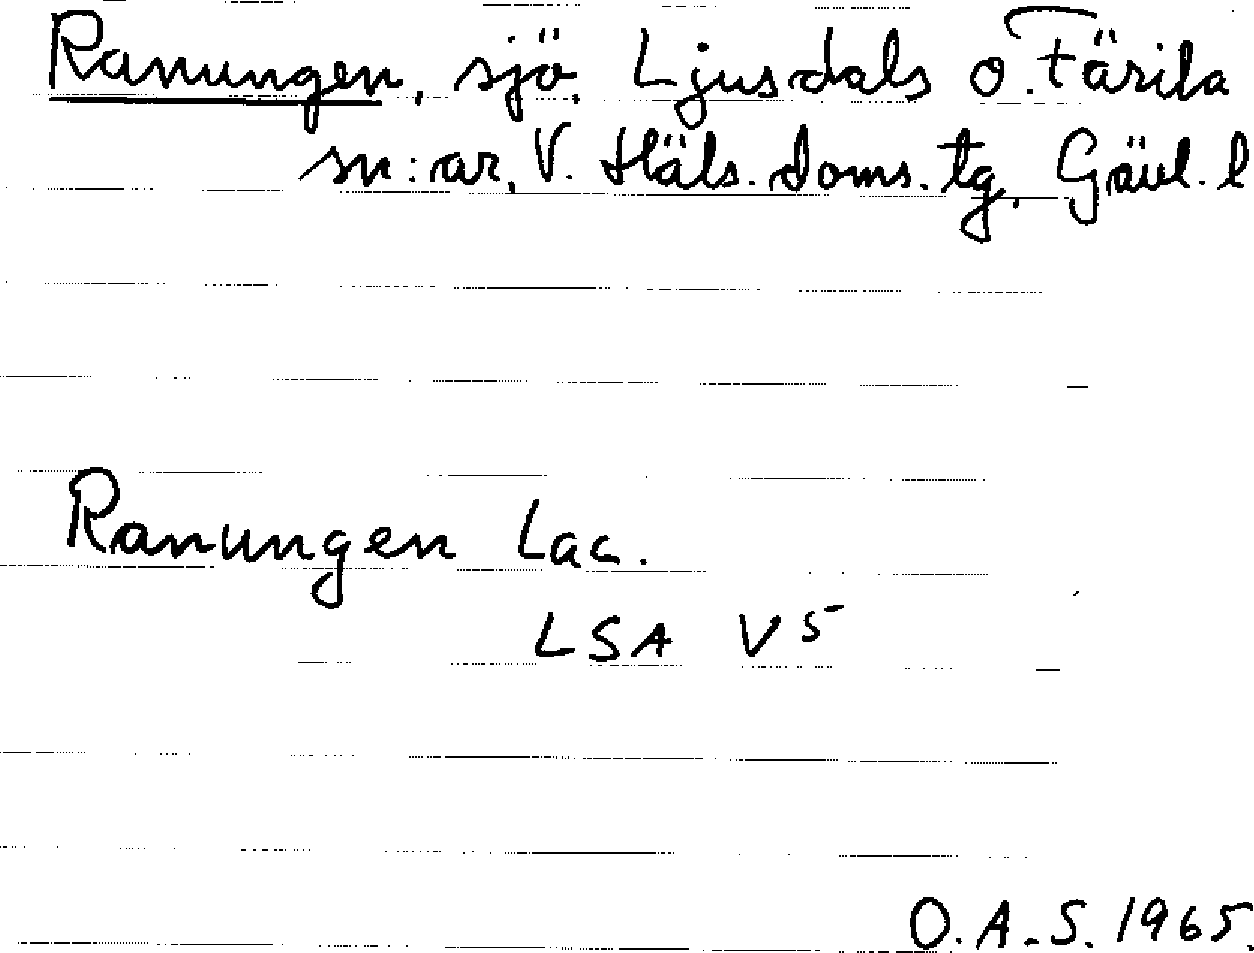 Ranungen, sjö, Ljusdals o. Färila
sn:ar, V. Häls. doms. tg, Gävl. l
Ranungen Lac.
LSA V5
O.A.S. 1965.